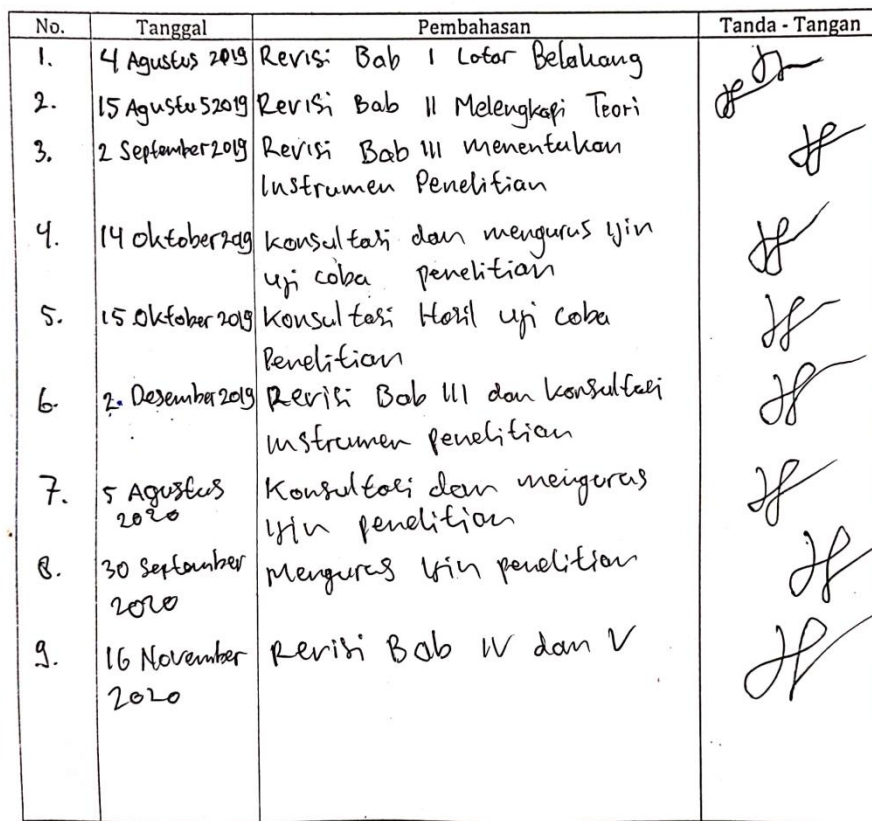 No. Tanggal Pembahasan Tanda - Tangan
1. 4 Agustus 2019 Revisi Bab I Latar Belakang
2. 15 Agustus 2019 Revisi Bab II Melengkapi Teori
3. 2 September 2019 Revisi Bab III menentukan
Instrumen Penelitian
4. 14 Oktober 2019 Konsultasi dan mengurus ijin
uji coba penelitian
5. 15 Oktober 2019 Konsultasi Hasil uji coba
Penelitian
6. 2. Desember 2019 Revisi Bab III dan konsultasi
instrumen penelitian
7. 5 Agustus Konsultasi dan mengurus
2020 ijin penelitian
8. 30 September Mengurus ijin penelitian
2020
9. 16 November Revisi Bab IV dan V
2020